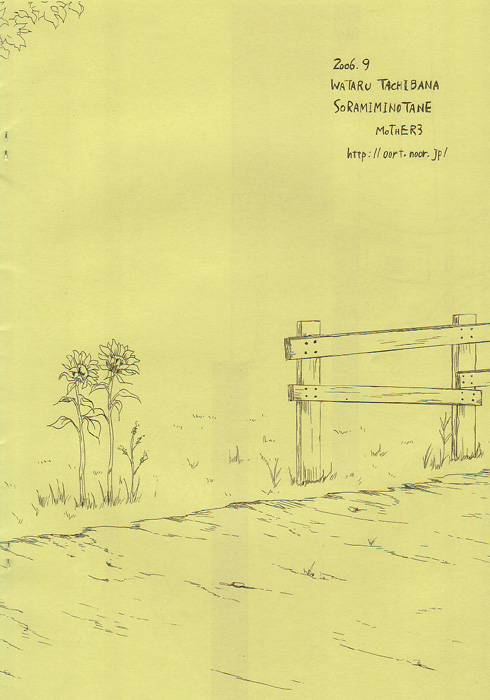 2006.9
WATARU TACHIBANA
SORAMIMINOTANE
MOTHER3
http://oort.noor.jp/